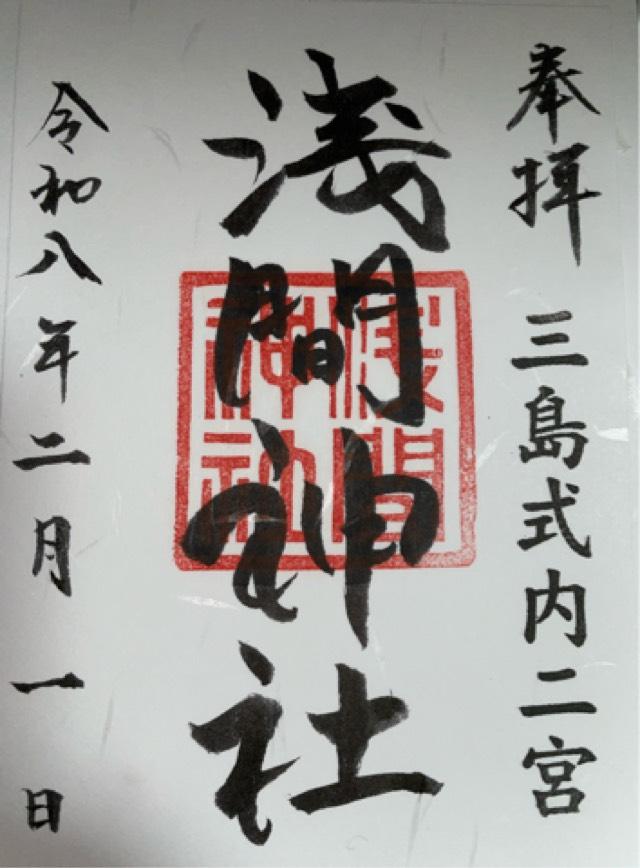 奉拝 三島式内二宮
浅間神社
浅間神社
令和八年二月一日